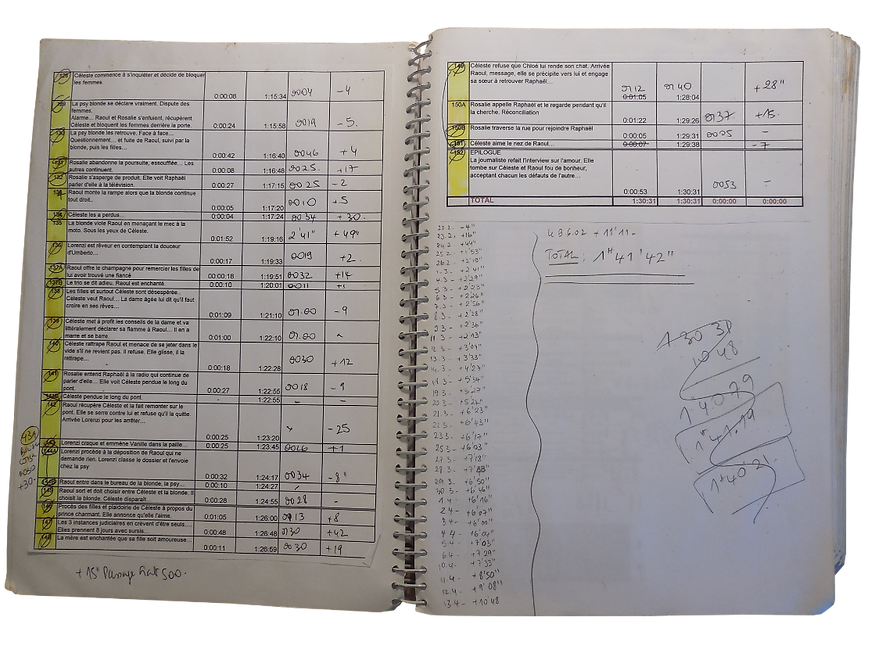 Céleste commence à s'inquiéter et décide de bloquer
les femmes 0:00:08 1:15:34 0004 -4
La psy blonde se déclare vraiment. Dispute des
femmes.
Alarme... Raoul et Rosalie s'enfuient, récupèrent
Céleste et bloquent les femmes derrière la porte. 0:00:24 1:15:58 0019 -5.
La psy blonde les retrouve. Face à face...
Questionnement... et fuite de Raoul, suivi par la
blonde, puis les filles... 0:00:42 1:16:40 0046 +4
Rosalie abandonne la poursuite, essoufflée... Les
autres continuent. 0:00:08 1:16:48 0025. +17
Rosalie s'asperge de produit. Elle voit Raphaël
parler d'elle à la télévision. 0:00:27 1:17:15 0025 -2
Raoul monte la rampe alors que la blonde continue
tout droit... 0:00:05 1:17:20 0010 +5
Céleste les a perdus... 0:00:04 1:17:24 0034 +30.
La blonde viole Raoul en menaçant le mec à la
moto. Sous les yeux de Céleste. 0:01:52 1:19:16 2'41" +49"
Lorenzi est rêveur en contemplant la douceur
d'Umberto... 0:00:17 1:19:33 0019 +2.
Raoul offre le champagne pour remercier les filles de
lui avoir trouvé une fiancé 0:00:18 1:19:51 0032 +14
Le trio se dit adieu. Raoul est enchanté. 0:00:10 1:20:01 0011 +1
Les filles et surtout Céleste sont désespérée.
Céleste veut Raoul... La dame âgée lui dit qu'il faut
croire en ses rêves... 0:01:09 1:21:10 -9
Céleste met à profit les conseils de la dame et va
littéralement déclarer sa flamme à Raoul... Il en a
marre et se barre. 0:01:00 1:22:10 01.00
Céleste rattrape Raoul et menace de se jeter dans le
vide s'il ne revient pas. Il refuse. Elle glisse, il la
rattrape... 0:00:18 1:22:28 0030 +12
Rosalie entend Raphaël à la radio qui continue de
parler d'elle... Elle voit Céleste pendue le long du
pont. 0:00:27 1:22:55 0018 -9
Céleste pendue le long du pont. - 1:22:55 - -
Raoul récupère Céleste et la fait remonter sur le
pont. Elle se serre contre lui et refuse qu'il la quitte.
Arrivée Lorenzi pour les arrêter... 0:00:25 1:23:20 -25
Lorenzi craque et emmène Vanille dans la paille... 0:00:25 1:23:45 0026 +1
Lorenzi procède à la déposition de Raoul qui ne
demande rien. Lorenzi classe le dossier et l'envoie
chez la psy 0:00:32 1:24:17 0034 -8"
Raoul entre dans le bureau de la blonde, la psy... 0:00:10 1:24:27
Raoul sort et doit choisir entre Céleste et la blonde. Il
choisit la blonde. Céleste disparaît... 0:00:28 1:24:55 0028 -
Procès des filles et plaidoirie de Céleste à propos du
prince charmant. Elle annonce qu'elle l'aime. 0:01:05 1:26:00 0113 +8
Les 3 instances judiciaires en crèvent d'être seuls...
Elles prennent 8 jours avec sursis... 0:00:48 1:26:48 0130 +42
La mère est enchantée que sa fille soit amoureuse... 0:00:11 1:26:59 0030 +19
+15" Passage 500.
Céleste refuse que Chloé lui rende son chat. Arrivée
Raoul, message, elle se précipite vers lui et engage
sa sœur à retrouver Raphaël... 0112 0:01:05 0140 1:28:04 +28"
150A Rosalie appelle Raphaël et le regarde pendant qu'il
la cherche. Réconciliation 0:01:22 1:29:26 0137 +15.
150B Rosalie traverse la rue pour rejoindre Raphaël 0:00:05 1:29:31 0005 -
151 Céleste aime le nez de Raoul... 0:00:07 1:29:38 - -7
152 EPILOGUE
La journaliste refait l'interview sur l'amour. Elle
tombe sur Céleste et Raoul fou de bonheur,
acceptant chacun les défauts de l'autre... 0:00:53 1:30:31 0053 -
TOTAL 1:30:31 1:30:31 0:00:00 0:00:00
TOTAL : 1"41'42"
22.2. -4"
23.2. +16"
24.2. +44"
25.2. +1'53"
1.3. +2'41"
5.3. +2'23"
8.3. +2'28"
11.3 +2'13"
13.3 +3'33"
21.3 +6'23"
25.3 +6'03"
29.3 +6'50"
30.3 +6'46"
1.4 +6'16"
2.4 +6'07"
6.4 +7'29"
10.4 +7'33"
11.4 +8'50"
12.4 +9'08"
13.4 +10'48
1 30 31
10 48
1 40 79
1"41.19
1"40 31